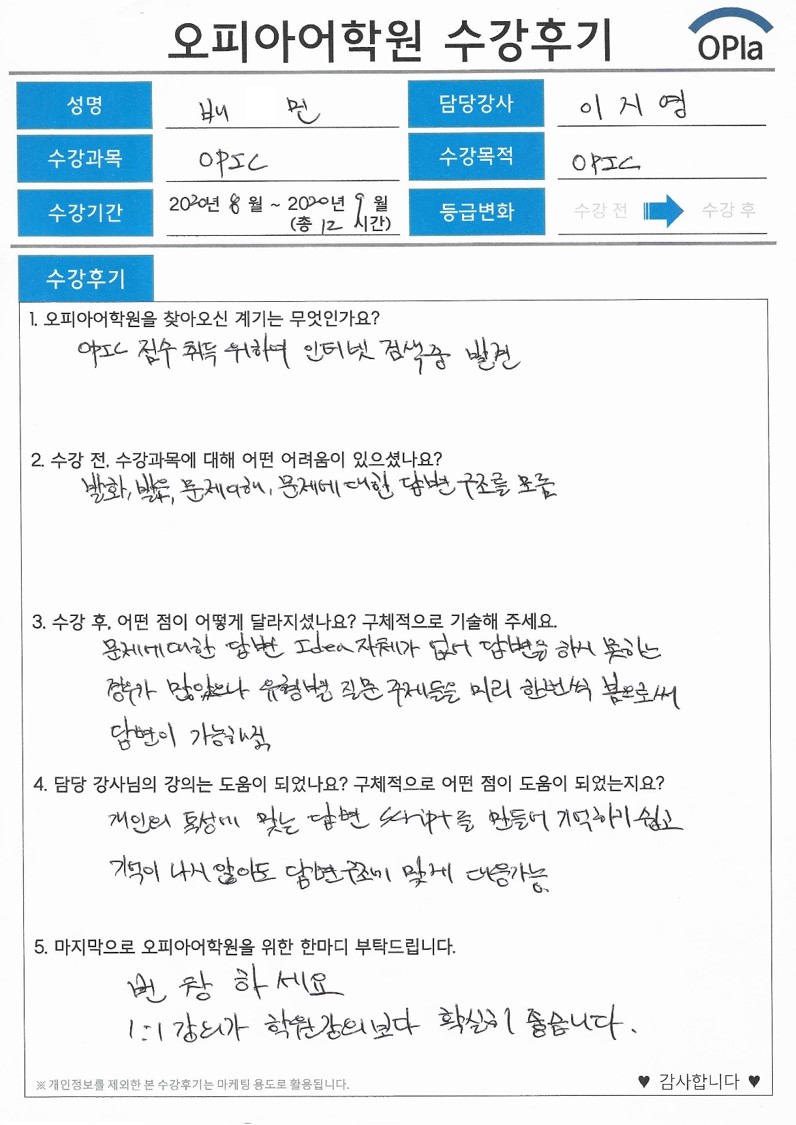 오피아어학원 수강후기
OPIa
성명 배 민 담당강사 이지영
수강과목 OPIC 수강목적 OPIC
수강기간 2020년 8월 ~ 2020년 9월 등급변화 수강 전 수강 후
(총 12 시간)
수강후기
1. 오피아어학원을 찾아오신 계기는 무엇인가요?
OPIC 점수 취득 위하여 인터넷 검색중 발견
2. 수강 전, 수강과목에 대해 어떤 어려움이 있으셨나요?
발화, 발음, 문제이해, 문제에 대한 답변 구조를 모름
3. 수강 후, 어떤 점이 어떻게 달라지셨나요? 구체적으로 기술해 주세요.
문제에 대한 답변 Idea 자체가 없어 답변을 하지 못하는
경우가 많았으나 유형별 질문 주제들을 미리 한번씩 봄으로써
답변이 가능해짐
4. 담당 강사님의 강의는 도움이 되었나요? 구체적으로 어떤 점이 도움이 되었는지요?
개인의 특성에 맞는 답변 script를 만들어 기억하기 쉽고
기억이 나지 않아도 답변구조에 맞게 대응가능.
5. 마지막으로 오피아어학원을 위한 한마디 부탁드립니다.
번창하세요
1:1 강의가 학원강의보다 확실히 좋습니다.
※ 개인정보를 제외한 본 수강후기는 마케팅 용도로 활용됩니다.
♥ 감사합니다 ♥